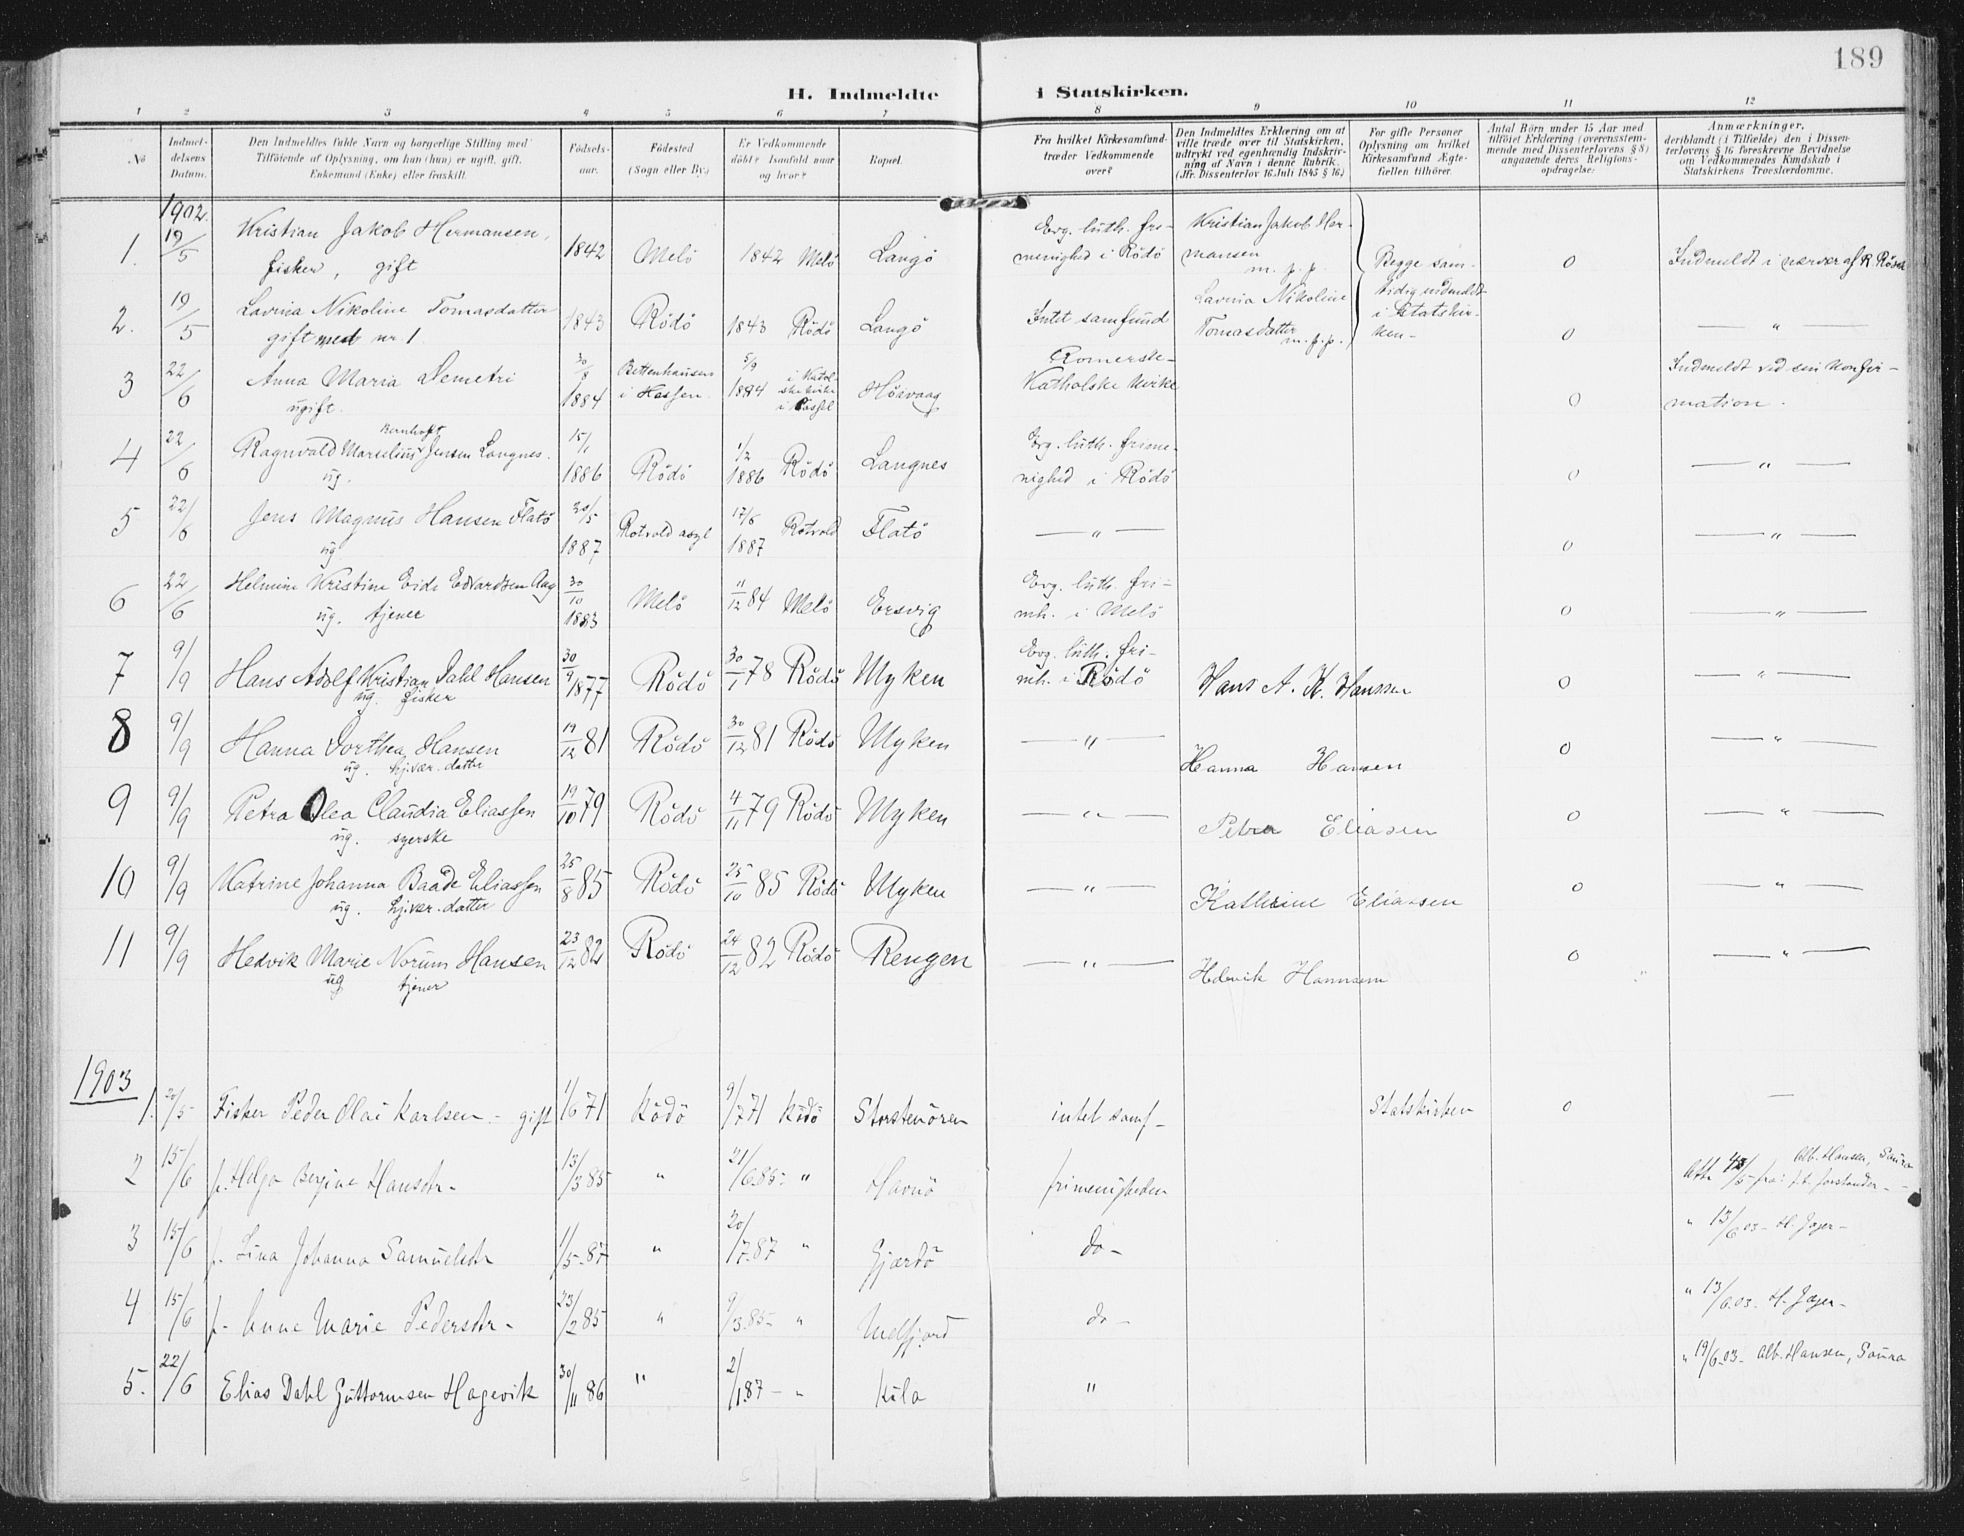 189
H. Indmeldte i Statskirken.
1 2 3 4 5 6 7 8 9 10 11 12
No
Indmel-
delsens
Datum.
Den Indmeldtes fulde Navn og borgerlige Stilling med
Tilföiende af Oplysning, om han (hun) er ugift, gift,
Enkemand (Enke) eller fraskilt.
Födsels-
aar.
Födested
(Sogn eller By.)
Er Vedkommende
döbt? Isaafald naar
og hvor?
Bopæl.
Fra hvilket Kirkesamfund
træder Vedkommende
over?
Den Indmeldtes Erklæring om at
ville træde over til Statskirken,
udtrykt ved egenhændig Indskriv-
ning af Navn i denne Rubrik.
(Jfr. Dissenterlov 16 Juli 1845 § 16.)
For gifte Personer
Oplysning om hvilket
Kirkesamfund Ægte-
fællen tilhörer.
Antal Börn under 15 Aar med
tilföiet Erklæring (overensstem-
mende med Dissenterlovens § 8)
angaaende deres Religions-
opdragelse:
Anmærkninger,
deriblandt (i Tilfælde) den i Dissen-
terlovens § 16 foreskrevne Bevidnelse
om Vedkommendes Kundskab i
Statskirkens Troeslærdomme.
1902.
1. 19/5 Kristian Jakob Hermansen, 1842 Melö 1842 Melö Langö Evg. luth. fri- Kristian Jakob Her-
fisker, gift menighed i Rödö mansen m. p. p. Begge sam- 0 Indmeldt i nærvær af R. Rösok
2. 19/5 Lavina Nikoline Tomasdatter 1843 Rödö 1843 Rödö Langö Intet samfund Lavina Nikoline tidig indmeldt
gift med nr 1. Tomasdatter m. p. p. i Statskir- 0 — " —
ken -
3 22/6 Anna Maria Demetri 30/8 Bettenhausen 5/9 i Katol- Romerske- Indmeldt ved sin Konfir-
ugift. 1884 i Hessen. 1884 ske kirke i Cassel Hösvaag Katholske Kirke 0 mation.
4 22/6 Ragnvald Marselius Bernhoft Jensen Langnes. 15/1 1/2 Evg. luth. frime-
ug. 1886 Rödö 1886 Rödö Langnes nighed i Rödö 0 — " —
5 22/6 Jens Magnus Hansen Flatö 20/5 Rotvold asyl 17/6 Rotvold Flatö — " — — " —
ug 1887 1887 0
6 22/6 Helmine Kristine Eids Edvardsen Aag 30/10 Melö 11/12 84 Melö Ersvig Evg. luth. fri-
ug. tjener 1883 mh. i Melö 0 — " —
7 9/9 Hans Adolf Kristian Dahl Hansen 30/9 1877 Rödö 30/1 78 Rödö Myken Evg. luth. fri-
ug. fisker mh. i Rödö Hans A. K. Hanssen 0 — " —
8 9/9 Hanna Dorthea Hansen 19/12 81 Rödö 30/12 81 Rödö Myken — " — Hanna Hansen 0 — " —
ug. hj.vær. datter
9 9/9 Petra Olea Claudia Eliassen 19/10 79 Rödö 4/11 79 Rödö Myken — " — Petra Eliasen 0 — " —
ug. syerske
10 9/9 Katrine Johanna Baade Eliassen 25/8 85 Rödö 25/10 85 Rödö Myken — " — Kathrine Eliassen 0 — " —
ug. hj.vær. datter
11 9/9 Hedvik Marie Norum Hansen 23/12 82 Rödö 24/12 82 Rödö Rengen — " — Hdevik Hannsem 0 — " —
ug tjener
1903
1. 20/5- Fisker Peder Olai Karlsen.- gift 1/6 71 Rödö 9/7 71 Rödö Storstenören intet samf- Statskirken 0 —
2 15/6 p. Helga Bergine Hansdr- 13/3 85 " 21/6.85- " Havnö frimenigheden Alb. Hansen, Sauna
Att. /5- fra f.b. forstander -
3 15/6 p. Lina Johanna Samuelsdr 1/5-87 " 20/7.87 " Gjærdö do- " 13/6 03- H. Jæger-
4 15/6 p- Anne Marie Pedersdr- 23/2 85 " 9/3.85- " Melfjord do- " 13/6.03. H. Jæger-
5. 22/6 Elias Dahl Guttormsen Hagevik 30/11 86 " 2/1.87- " Kila " " 19/6.03- Alb. Hansen, Sauna